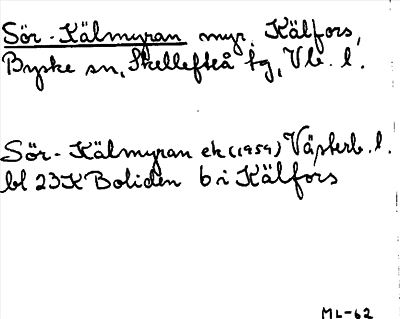 Sör-Kälmyran myr, Kälfors,
Byske sn, Skellefteå tg, Vb. l.
Sör-Kälmyran ek (1959) Västerb. l.
bl 23K Boliden 6 i Kälfors
ML-62